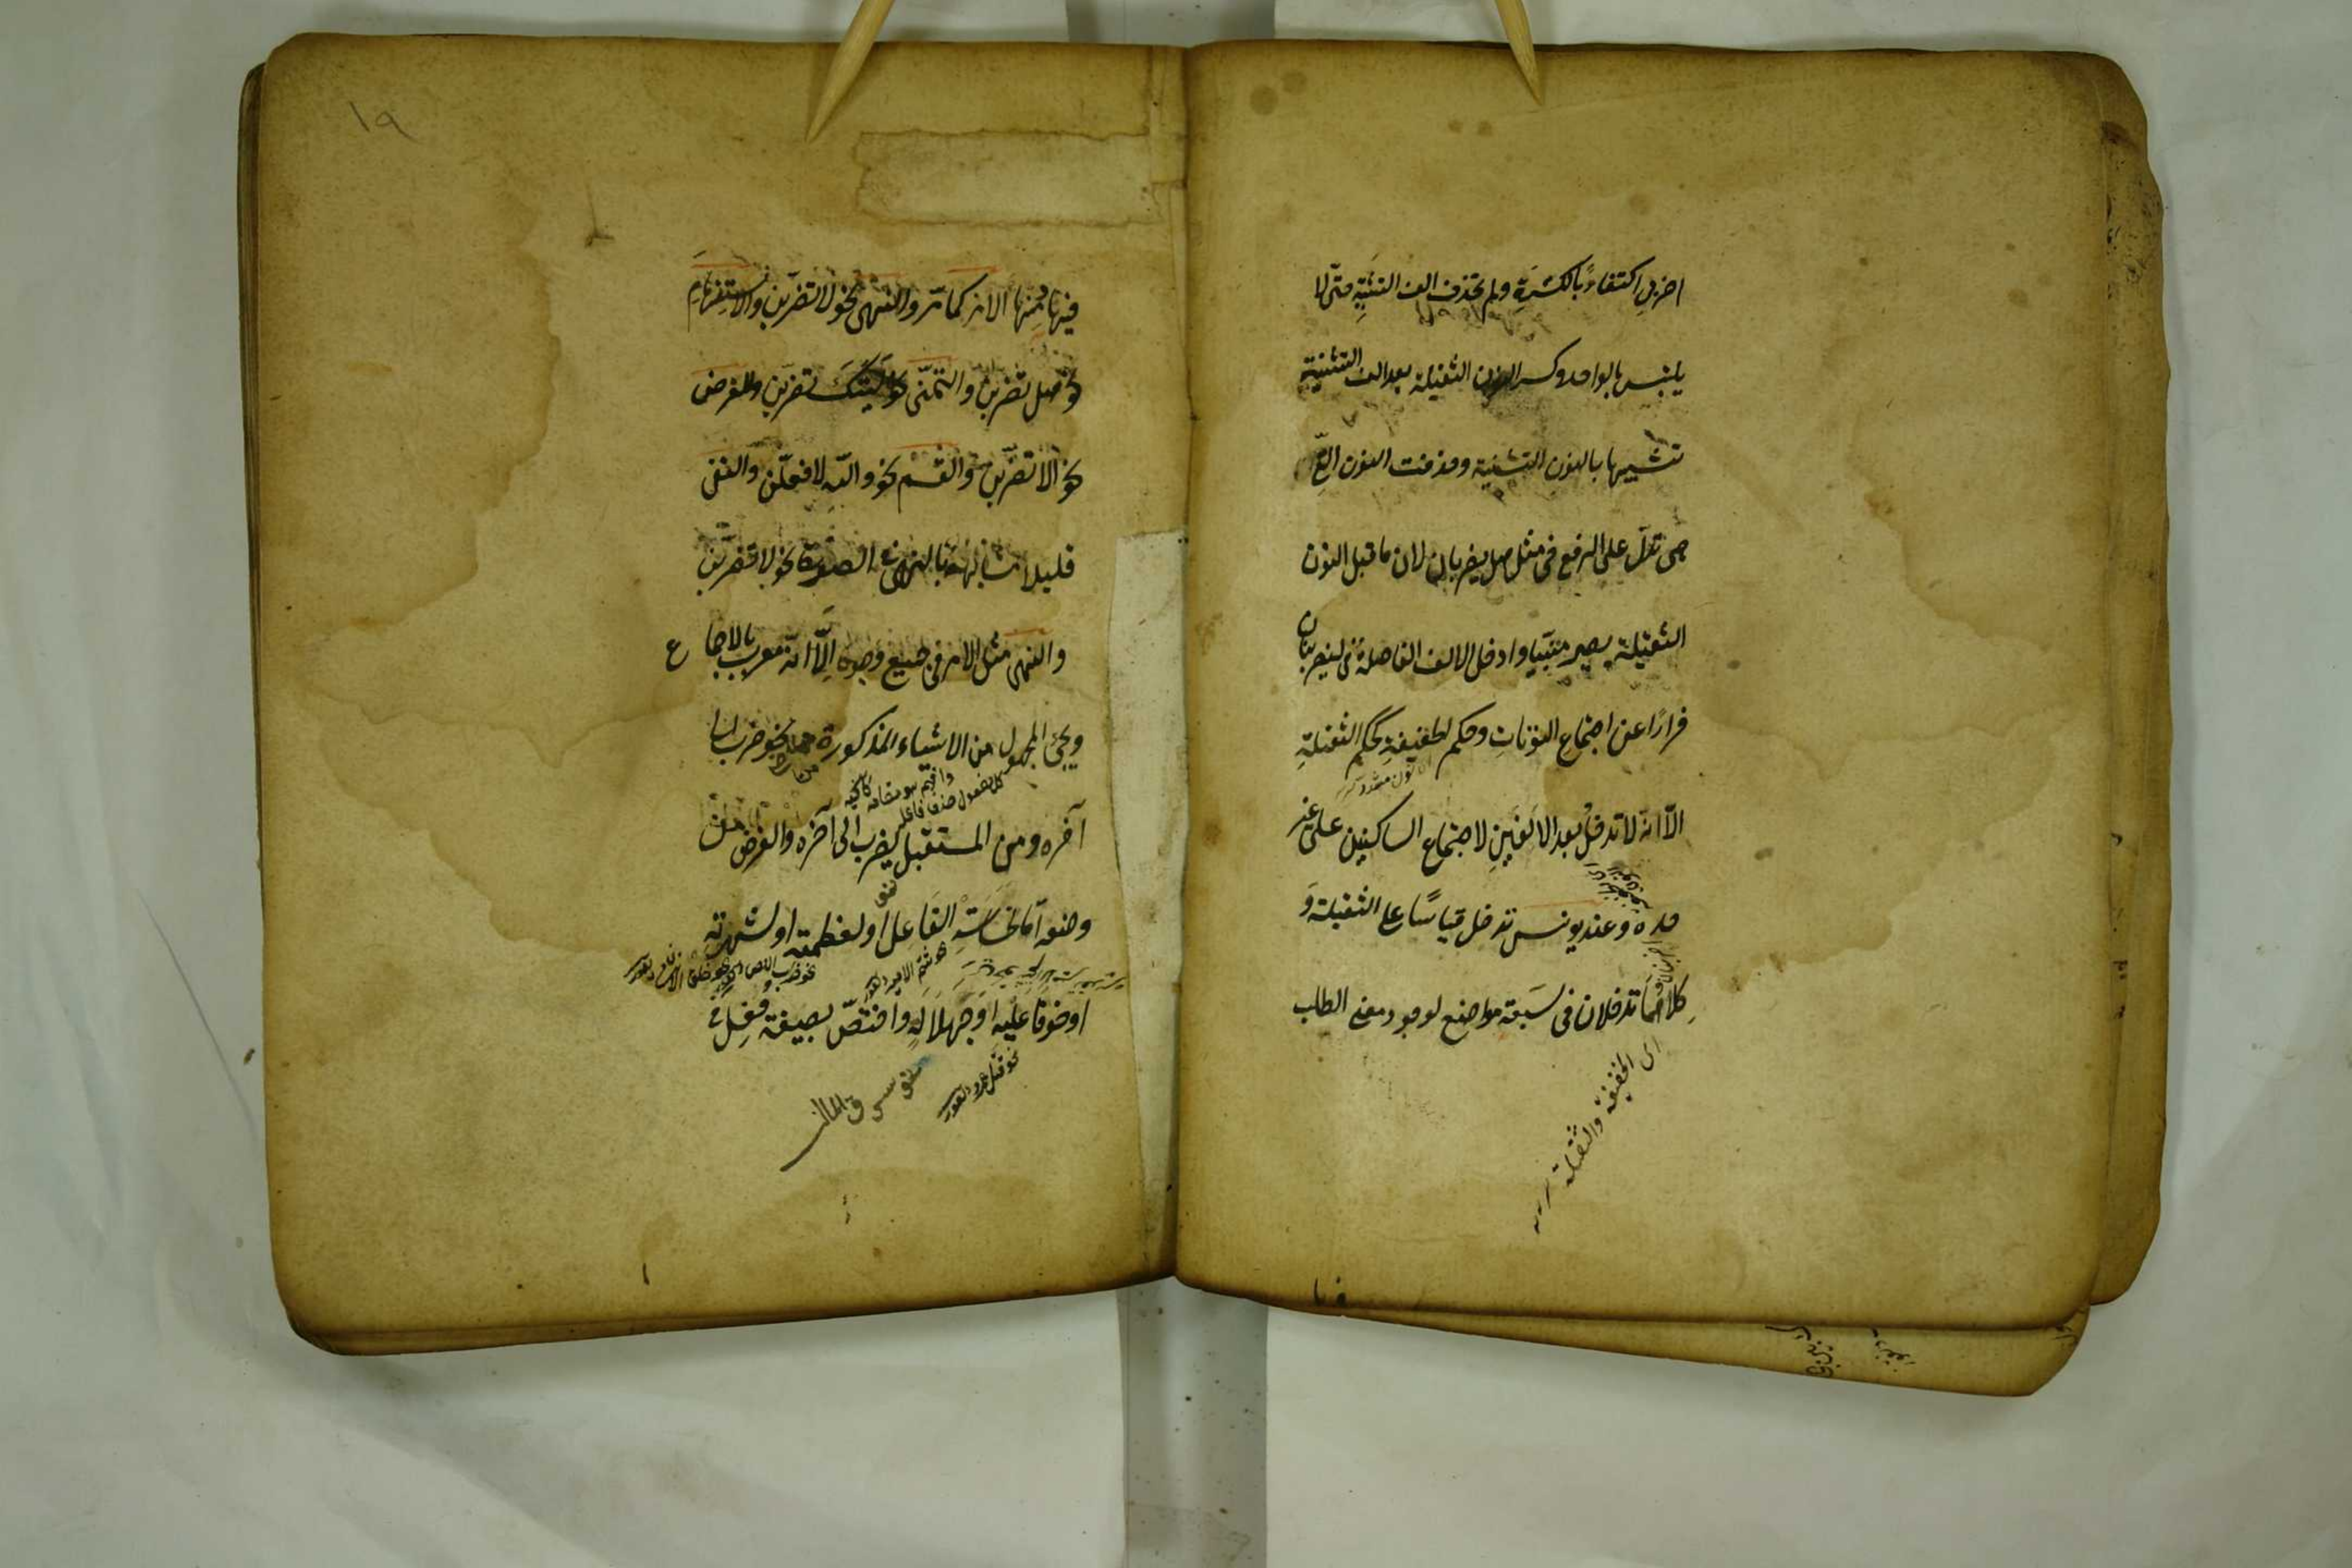 اضربِ اكتفاءً بالكسرةِ ولم تحذف الف التثنيةِ حتّى لا
يلتبس بالواحد وكسر النون الثقيلة بعد الف التثنية
تشبيها بالنون التثنية وحذفت النون الّتى
هى تدلّ على الرفع فى مثل هل يضربانِ لان ما قبل النون
الثقيلة يصير مبنيّا وادخل الالف الفاصلة فى ليضربنان
فرارًا عن اجتماع النونات وحكم الخفيفةِ كحكم الثقيلةِ
الّا انه لا تدخلُ بعد الالفَينِ لاجتماع الساكنين على غير
حده وعند يونس تدخل قياسًا على الثقيلة وَ
كِلاهُمَا تدخلان فى سَبعة مواضع لوجود معنى الطلب
اى الخفيفة والثقيلة
١٩
فيها منها الامر كما مر والنهى نحو لا تضربن والاستفهام
نحو هل تضربن والتمنّى نحو ليتك تضربن والعرض
نحو الا تضربن والقسم نحو والله لافعلّن والنفى
قليلا مشابهة بالنهى نحو لا تضربّن
والنهى مثل الامر فى جميع وجوه الّا انّه معرب بالاجماع
ويجئ المجهول من الاشياء المذكورة نحو ضرب الى
كل مفعول حذف فاعله واقيم هو مقامه كافيه
آخره ومن المستقبل يضرب الى آخره والغرض من
وضعه اما لخساسَةِ الفَاعل او لعظمته او لشهرته
نحو شتم الامير
او خوفا عليه او جهلا له واختصّ بصيغة فُعِل فى
نحو قتل عمرو
نحو سرق المال